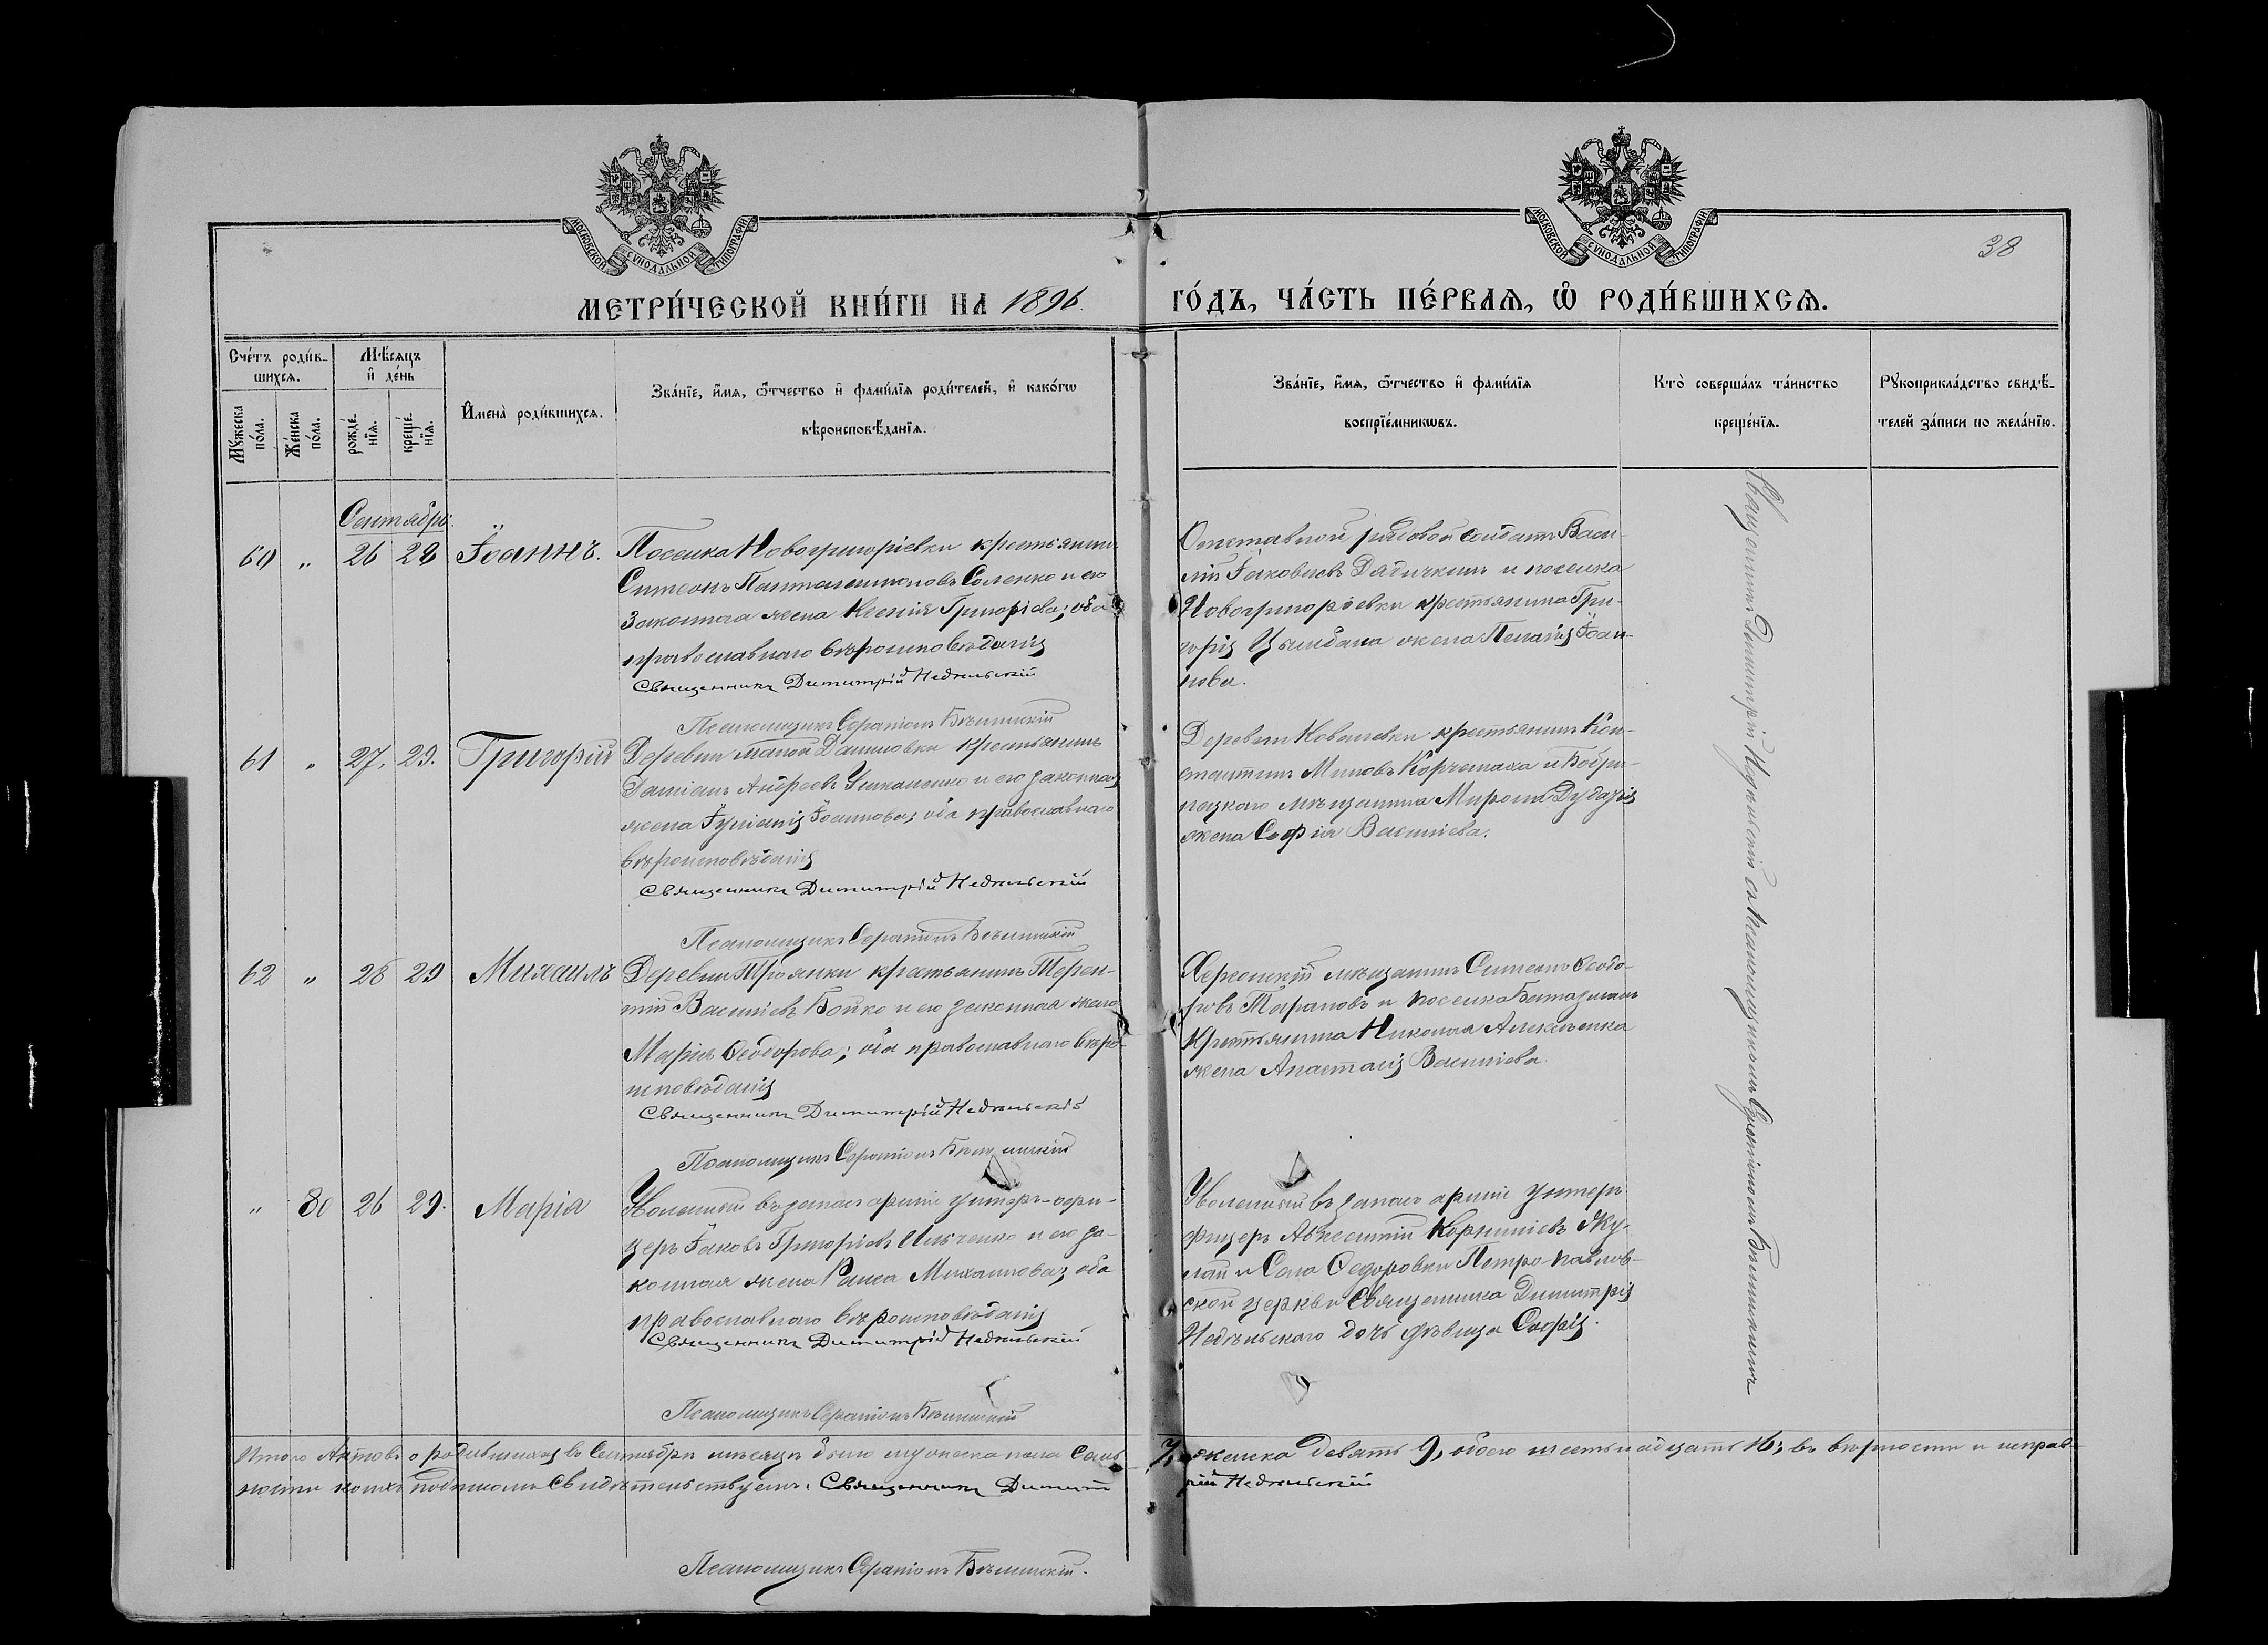 МОСКОВСКОЙ СУНОДАЛЬНОЙ ТИПОГРАФІИ
МОСКОВСКОЙ СУНОДАЛЬНОЙ ТИПОГРАФІИ
38
МЕТРИ́ЧЕСКОЙ КНИ́ГИ НА 1896.
ГО́ДЪ, ЧА́СТЬ ПЕ́РВАѦ, Ѡ РОДИ́ВШИХСѦ.
Сче́тъ роди́в-
шихсѧ.
Мѣ́сѧцъ
и҆ де́нь
И҆мена̀ роди́вшихсѧ.
Зва́нїе, и҆́мѧ, ѻ҆́тчество и҆ фами́лїѧ роди́телей, и҆ како́гѡ
вѣроисповѣ́данїѧ.
Мꙋ́жеска
по́ла.
Же́нска
по́ла.
рожде́-
нїѧ.
креще́-
нїѧ.
Зва́нїе, и҆́мѧ, ѻ҆́тчество и҆ фами́лїѧ
воспрїе́мникѡвъ.
Кто̀ соверша́лъ та́инство
креще́нїѧ.
Рꙋкоприкла́дство свидѣ́-
телей за́писи по жела́нїю.
Сентябрь.
60 " 26 28 Іоаннъ.
Поселка Новогригорiевки крестьянинъ
Симеонъ Пантелеимоновъ Соленко и его
Законная жена Ксенія Григоріева; оба
православнаго вѣроисповѣданія
Священникъ Димитрій Недѣльскій
Псаломщикъ Серапіонъ Бѣлинскій
Отставной рядовой солдатъ Васи-
лій Іаковлевъ Дядичкинъ и поселка
Новогригорiевки крестьянина Гри-
горія жена Пелагія Іоан-
нова.
61 " 27. 29. Григорій
Деревни малой Даниловки крестьянинъ
Даміанъ Андреевъ и его законная
жена Іуліанія Іоаннова; оба православнаго
вѣроисповѣданія
Священникъ Димитрій Недѣльскій
Псаломщикъ Серапіонъ Бѣлинскій
Деревни Ковалевки крестьянинъ Кон-
стантинъ Миновъ Корчемаха и Бобри-
нецкаго мѣщанина Мирона
жена Софія Василіева.
62 " 28 29 Михаилъ
Деревни Троянки крестьянинъ Терен-
тій Василіевъ Бойко и его законная жена
Марія Ѳеодорова; оба православнаго вѣро-
исповѣданія
Священникъ Димитрій Недѣльскій
Псаломщикъ Серапіонъ Бѣлинскій
Херсонскій мѣщанинъ Симеонъ Ѳеодо-
ровъ Тарановъ и поселка
крестьянина Николая
жена Анастасія Василіева.
" 80 26 29. Марія
Уволенный въ запасъ арміи унтеръ-офи-
церъ Іаковъ Григоріевъ Ильченко и его за-
конная жена Раиса Михаилова; оба
православнаго вѣроисповѣданія
Священникъ Димитрій Недѣльскій
Псаломщикъ Серапіонъ Бѣлинскій
Уволенный въ запасъ арміи унтеръ
фицеръ Авксентій Корниліевъ
и Села Ѳедоровки Петро-Павлов-
ской церкви Священника Димитрія
Недѣльскаго дочь дѣвица Софія.
Священникъ Димитрій Недѣльскій съ псаломщикомъ Серапіономъ Бѣлинскимъ
Итого Актовъ о родившихся въ Сентябрѣ мѣсяцѣ было мужеска пола Семь 7, женска девять 9, обоего шестьнадцать 16; въ вѣрности и исправ-
ности коихъ подписомъ Свидѣтельствуемъ. Священникъ Димитрій Недѣльскій
Псаломщикъ Серапіонъ Бѣлинскій.